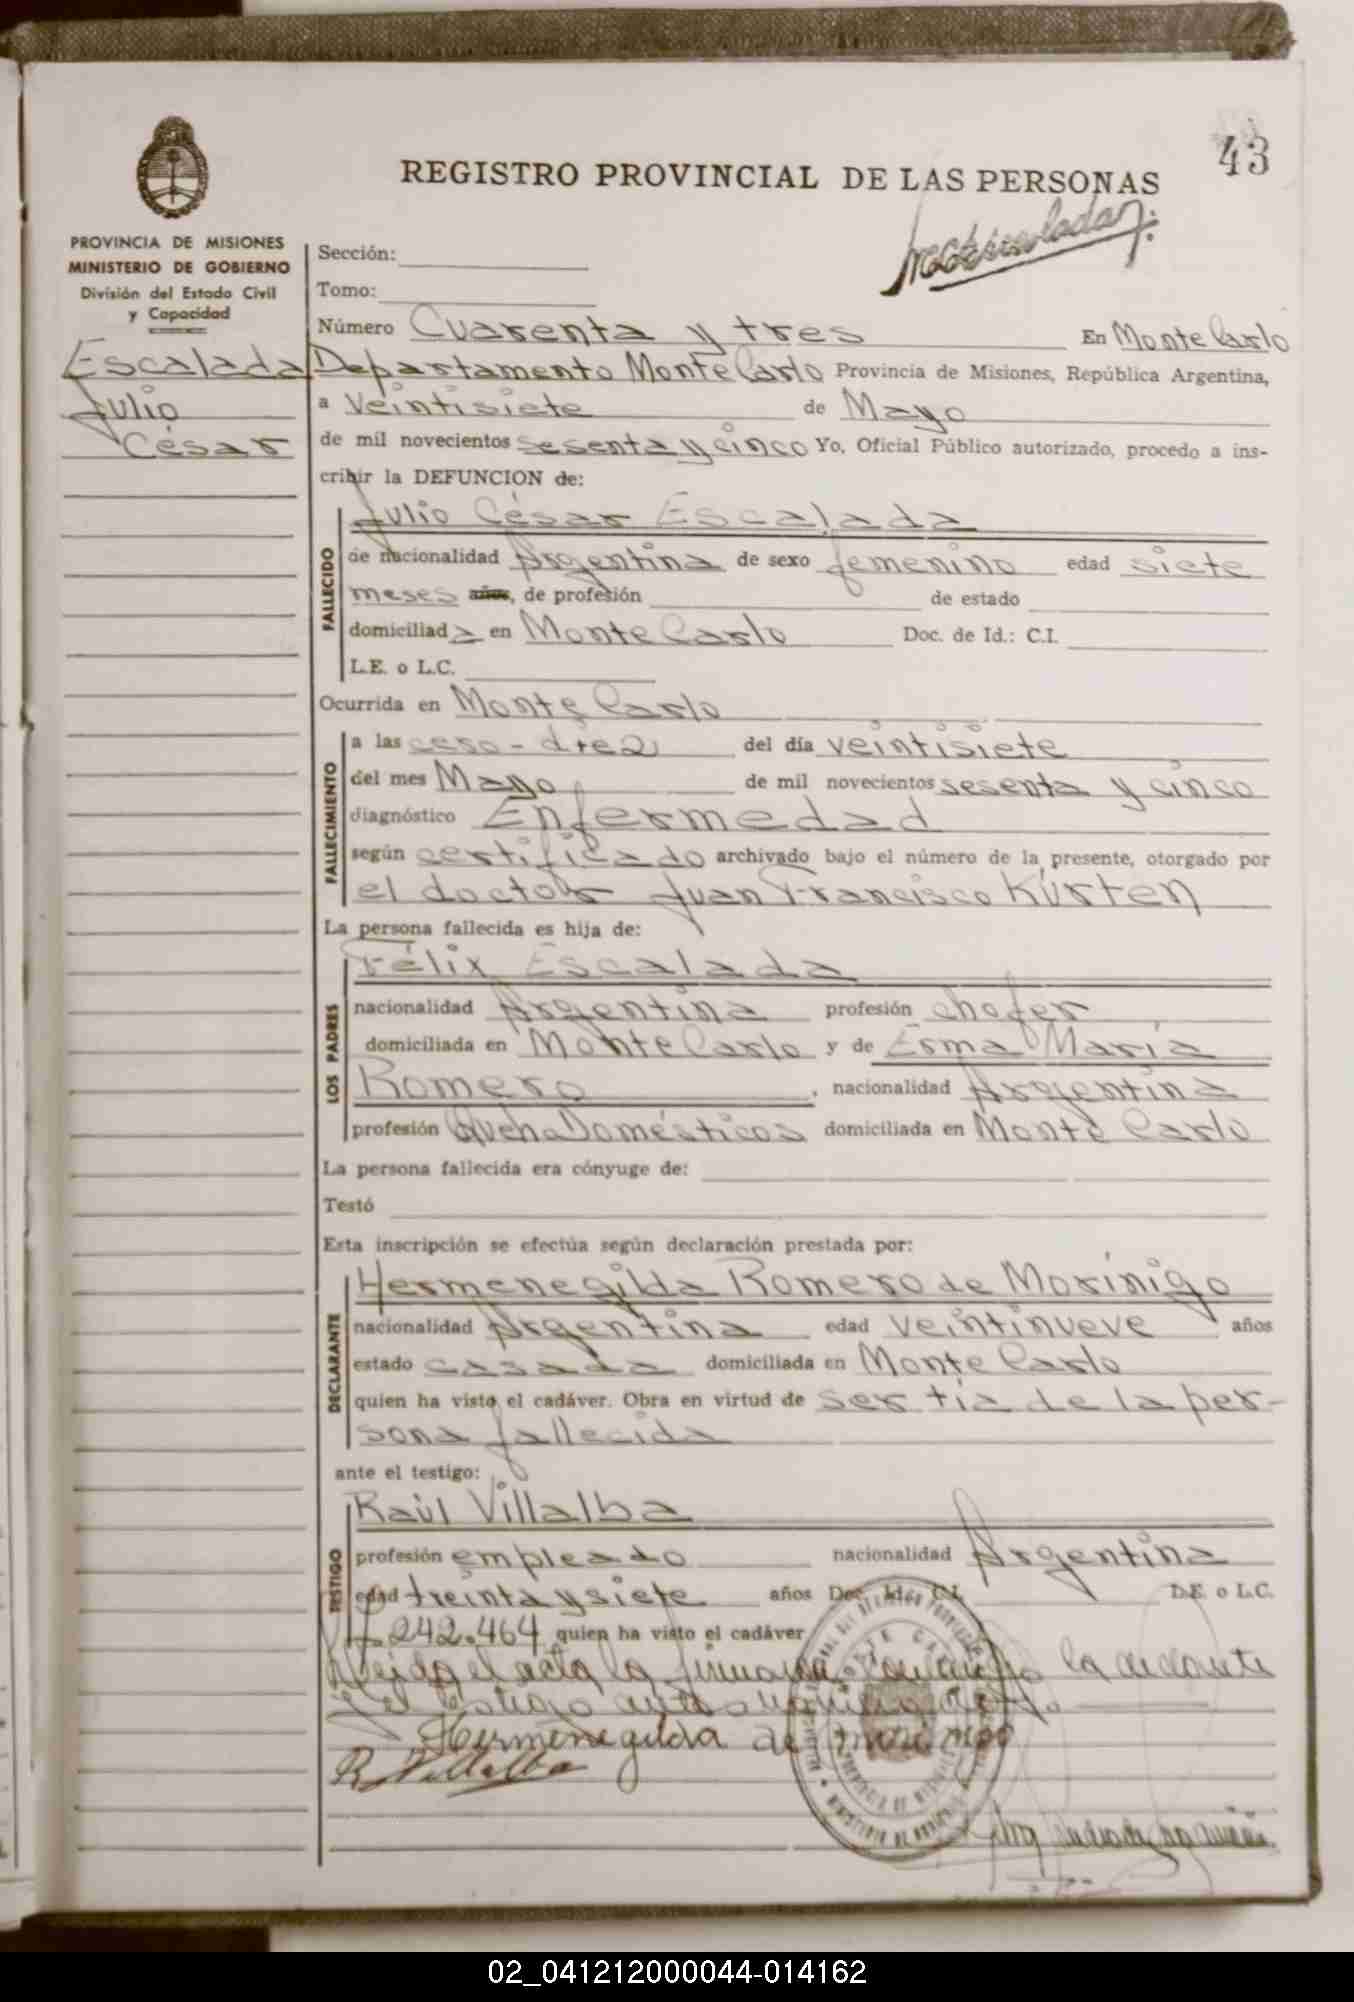 43
REGISTRO PROVINCIAL DE LAS PERSONAS
PROVINCIA DE MISIONES
MINISTERIO DE GOBIERNO
División del Estado Civil
y Capacidad
Escalada
Julio
César
Sección:
Tomo:
Número Cuarenta y tres En Monte Carlo
Departamento Monte Carlo Provincia de Misiones, República Argentina,
a veintisiete de Mayo
de mil novecientos sesenta y cinco Yo, Oficial Público autorizado, procedo a ins-
cribir la DEFUNCION de:
FALLECIDO
Julio César Escalada
de nacionalidad Argentina de sexo femenino edad siete
meses años, de profesión de estado
domiciliad a en Monte Carlo Doc. de Id.: C.I.
L.E. o L.C.
Ocurrida en Monte Carlo
FALLECIMIENTO
a las cero-diez del día veintisiete
del mes Mayo de mil novecientos sesenta y cinco
diagnóstico Enfermedad
según certificado archivado bajo el número de la presente, otorgado por
el doctor Juan Francisco Kürten
La persona fallecida es hija de:
LOS PADRES
Félix Escalada
nacionalidad Argentina profesión chofer
domiciliada en Monte Carlo y de Erma María
Romero, nacionalidad Argentina
profesión Queha Domésticos domiciliada en Monte Carlo
La persona fallecida era cónyuge de:
Testó
Esta inscripción se efectúa según declaración prestada por:
DECLARANTE
Hermenegilda Romero de Morínigo
nacionalidad Argentina edad veintinueve años
estado casada domiciliada en Monte Carlo
quien ha visto el cadáver. Obra en virtud de ser tía de la per-
sona fallecida
ante el testigo:
TESTIGO
Raúl Villalba
profesión empleado nacionalidad Argentina
edad treinta y siete años Doc. Id.: C.I. L.E. o L.C.
242.464 quien ha visto el cadáver
el acta la la
Hermenegilda de Morinigo
R. Villalba
02_041212000044-014162